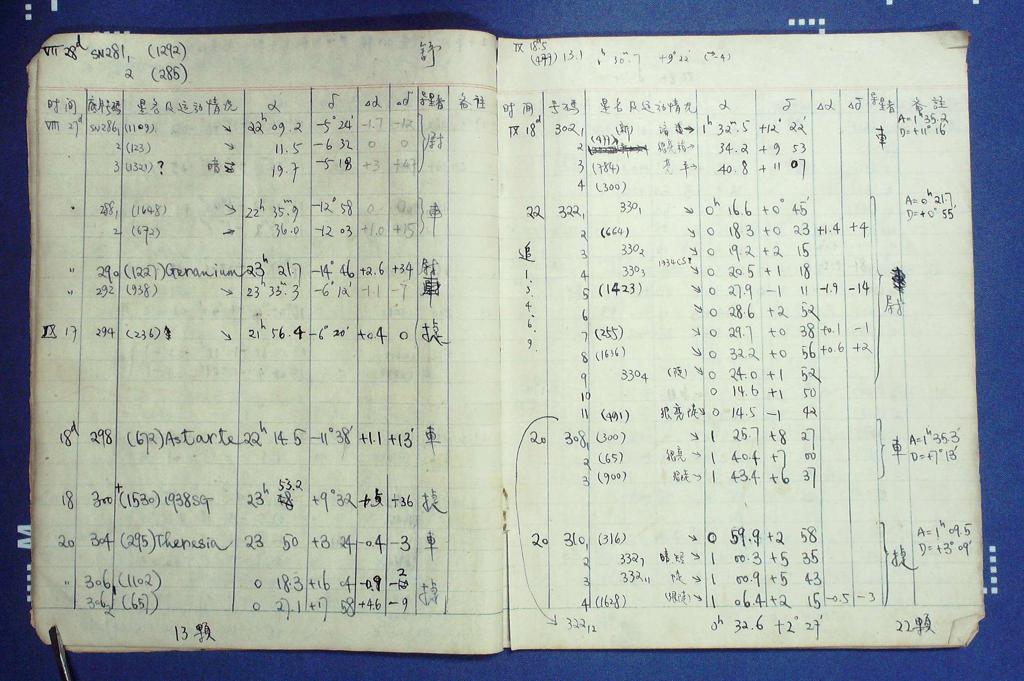 VIII 28d SN281, (1292)
2 (285)
时间 底片号码 星名及运动情况 α δ Δα Δδ 备註
VIII 27d SN286, (1109) ↘ 22h 09.2 -5° 24' -1.7 -12
2 (123) 11.5 -6 32 0 0
3 (1321)? 暗 19.7 -5 18 +3 +47
" 288, (1648) ↘ 22h 35m.9 -12° 58 車
2 (672) → 36.0 -12 03 +1.0 +15
" 290 (1227) Geranium 23h 21.7 -14° 46 +2.6 +34
" 292 (938) ↘ 23h 33m.3 -6° 12' -1.1 -7 車
IX 17 294 (236) ↘ 21h 56.4 -6° 20' +0.4 0
18d 298 (672) Astarte 22h 14.5 -11° 38' +1.1 +13' 車
18 300 (1530) 1938SG 23h 53.2 +9° 32 +36
20 304 (295) Theresia 23 50 +3 24 -0.4 -3 車
" 306, (1102) 0 18.3 +16 04 -0.9
306 2 (65) 0 27.1 +7 58 +46 -9
13 顆
IX 18d.5
13.1 1h 30m.7 +9° 22' (m-4)
时间 号码 星名及运动情况 α δ Δα Δδ 备註
IX 18d 302, (新) 1h 32m.5 +12° 22' 車 A=1h 35.2
D=+11° 16
2 34.2 +9 53
3 (784) 亮 平→ 40.8 +11 07
4 (300)
22 322, 330₁ ↘ 0h 16.6 +0° 45' A=0h 21.7
D=+0° 55'
2 (664) ↘ 0 18.3 +0 23 +1.4 +4
3 330₂ ↘ 0 19.2 +2 15
追 1. 3. 4. 6. 9.
4 330₃ ↘ 0 20.5 +1 18
5 (1423) ↘ 0 27.9 -1 11 -1.9 -14
6 ↘ 0 28.6 +2 52
7 (255) ↘ 0 29.7 +0 38 +0.1 -1
8 (1636) ↘ 0 32.2 +0 56 +0.6 +2
9 330₄ ↘ 0 24.0 +1 52
10 0 14.6 +1 50
11 (491) 0 14.5 -1 42
20 308, (300) ↘ 1 25.7 +8 27 車 A=1h 35.3'
D=+7° 13'
2 (65) ↘ 1 40.4 +7 00
3 (900) → 1 43.4 +6 37
20 310, (316) ↘ 0 59.9 +2 58 A=1h 09.5
D=+3° 09'
2 332, ↘ 1 00.3 +5 35
3 332₁₁ ↘ 1 00.9 +5 43
4 (1628) ↘ 1 06.4 +2 15 -0.5 -3
→ 322₁₂ 0h 32.6 +2° 27' 22顆